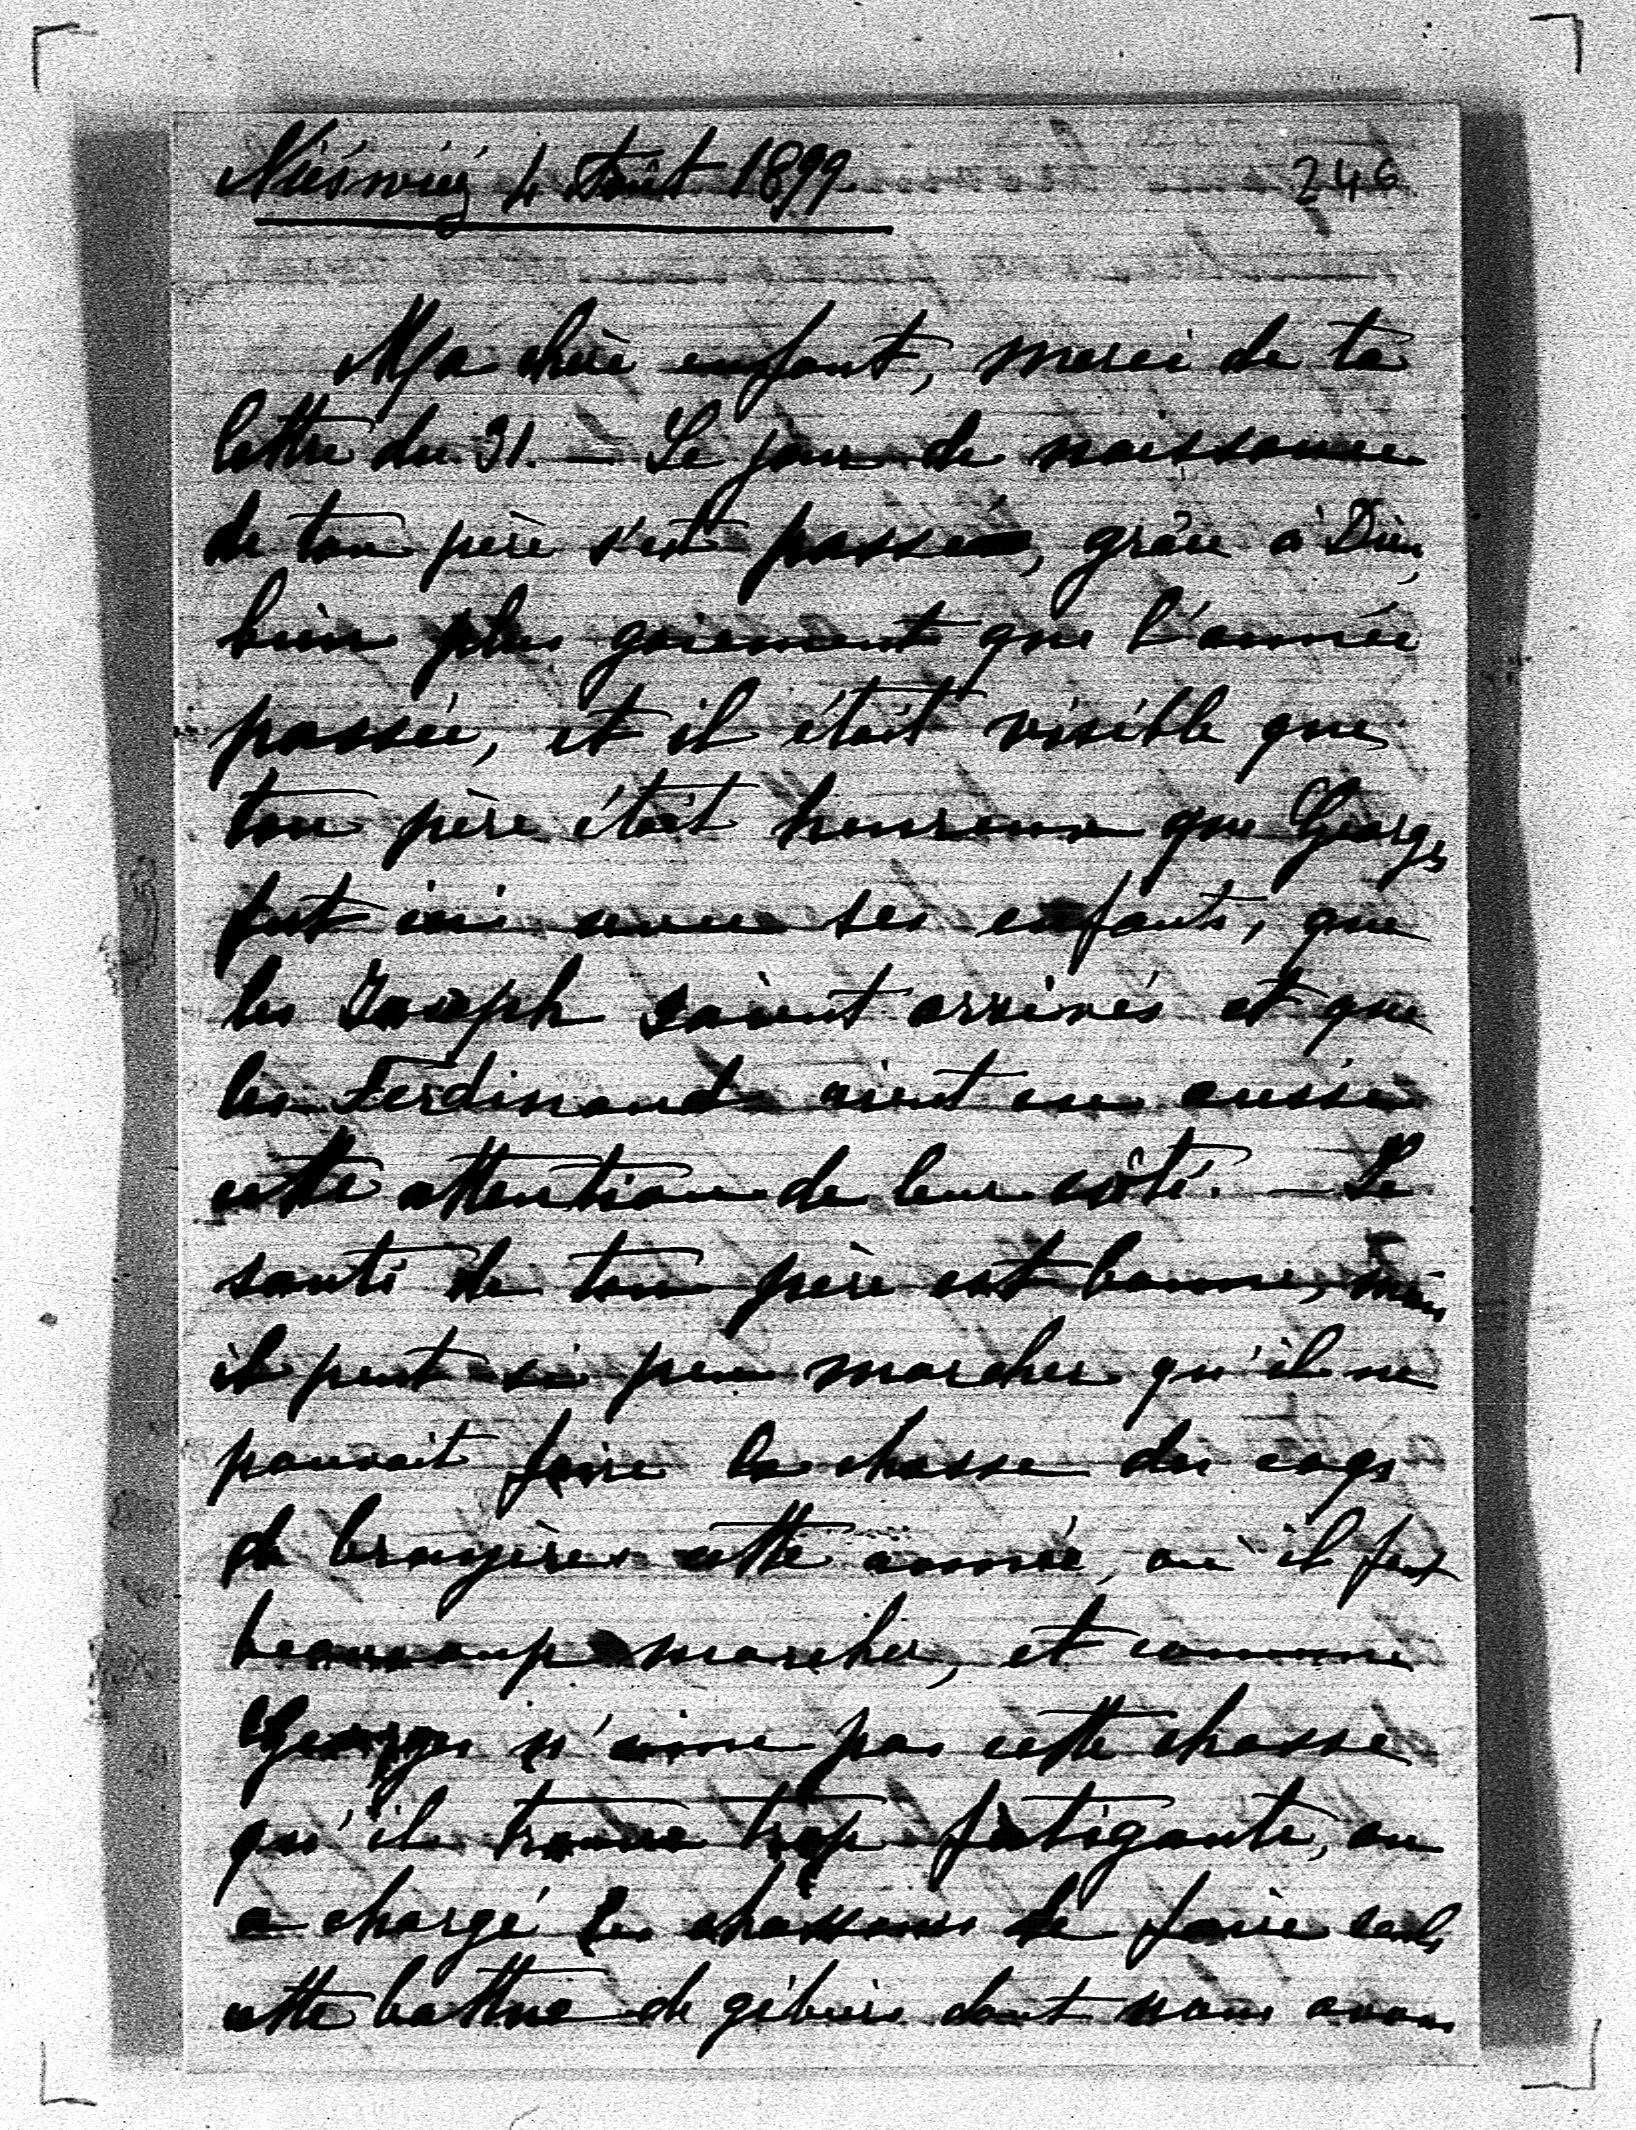 Nieśwież 4 Août 1899
246
Ma chère enfant, merci de ta
lettre du 31. – Le jour de naissance
de ton père s'est passé, grâce à Dieu,
bien plus gaiement que l'année
passée, et il était visible que
ton père était heureux que Georges
fut ici avec ses enfants, que
les Joseph soient arrivés et que
les Ferdinand aient eu aussi
cette attention de leur côté. – La
santé de ton père est bonne, mais
il peut si peu marcher qu'il ne
pouvait faire la chasse des coqs
de bruyères cette année, où il faut
beaucoup marcher, et comme
Georges n'aime pas cette chasse
qu'il trouve trop fatigante, on
a chargé les chasseurs de faire seuls
cette battue de gibier dont nous avons